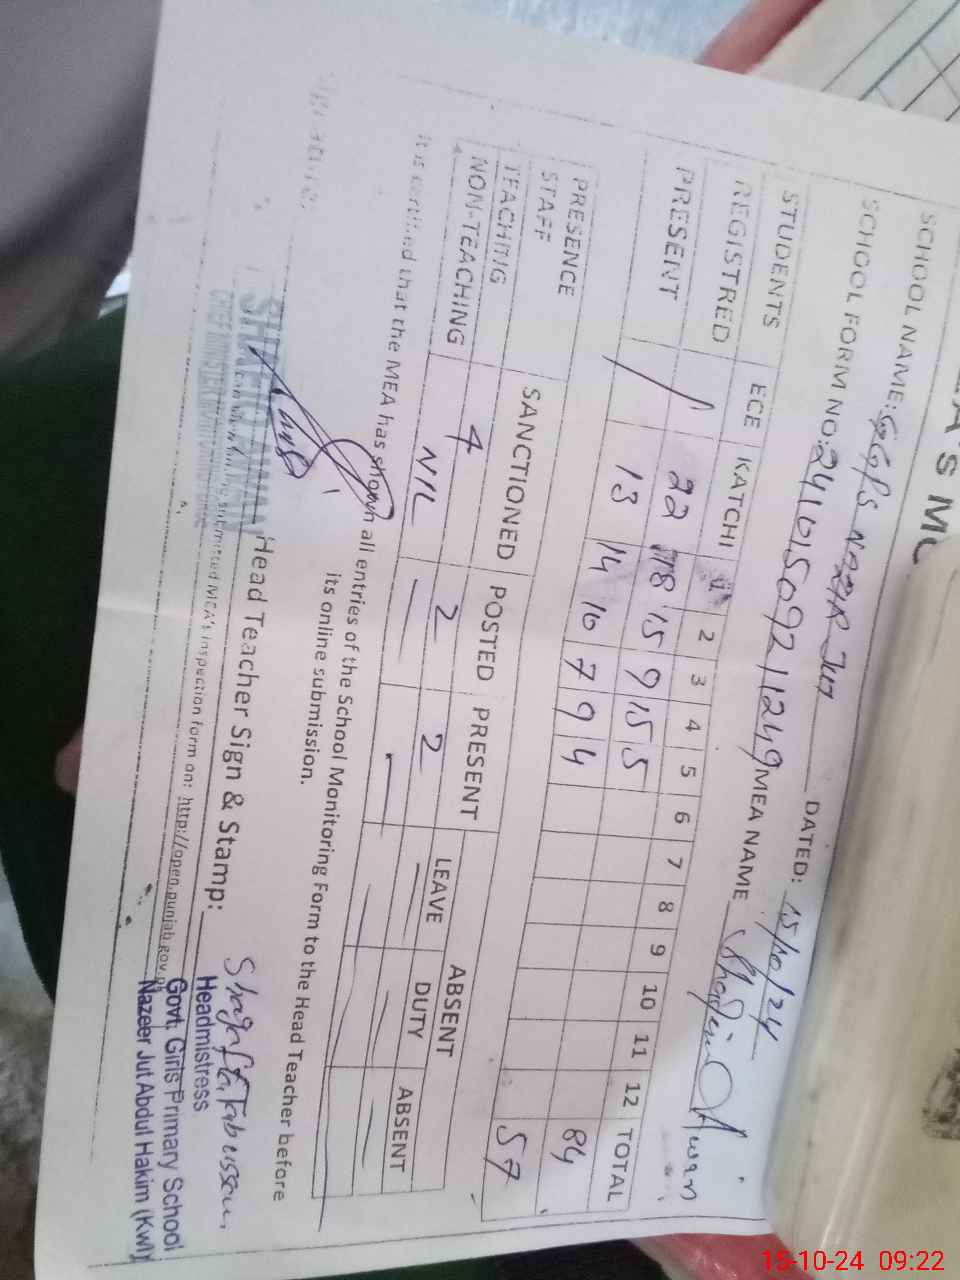 SCHOOL NAME: GGPS NAZIR Jut DATED: 15/10/24
SCHOOL FORM NO: 24101509211249 MEA NAME Awan
STUDENTS ECE KATCHI 1 2 3 4 5 6 7 8 9 10 11 12 TOTAL
REGISTRED / 22 18 15 9 15 5 84
PRESENT / 13 14 10 7 9 4 57
PRESENCE
STAFF SANCTIONED POSTED PRESENT ABSENT
LEAVE DUTY ABSENT
TEACHTING 4 2 2 — — —
NON-TEACHING NIL — — — — —
It is certified that the MEA has shown all entries of the School Monitoring Form to the Head Teacher before
its online submission.
Head Teacher Sign & Stamp: Shagufta Tabussum
Headmistress
Govt. Girls Primary School
Nazeer Jut Abdul Hakim (Kwl)
submitted MEA's inspection form on: http://open.punjab.gov.pk
AWAN
15-10-24 09:22